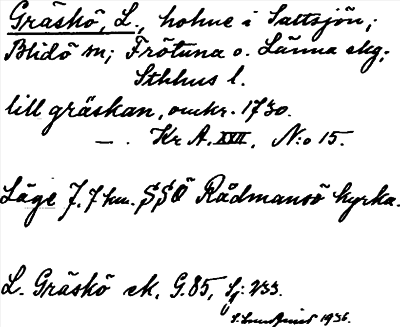 Gräskö, L., holme i Saltsjön;
Blidö sn; Frötuna o. Länna skg;
Sthlms l.
lill gräskan, omkr. 1730.
— . Kr A. XVII, N:o 15.
Läge 7,7 km. SSÖ Rådmansö kyrka.
L. Gräskö ek. G. 85, Sj: 233.
1936.